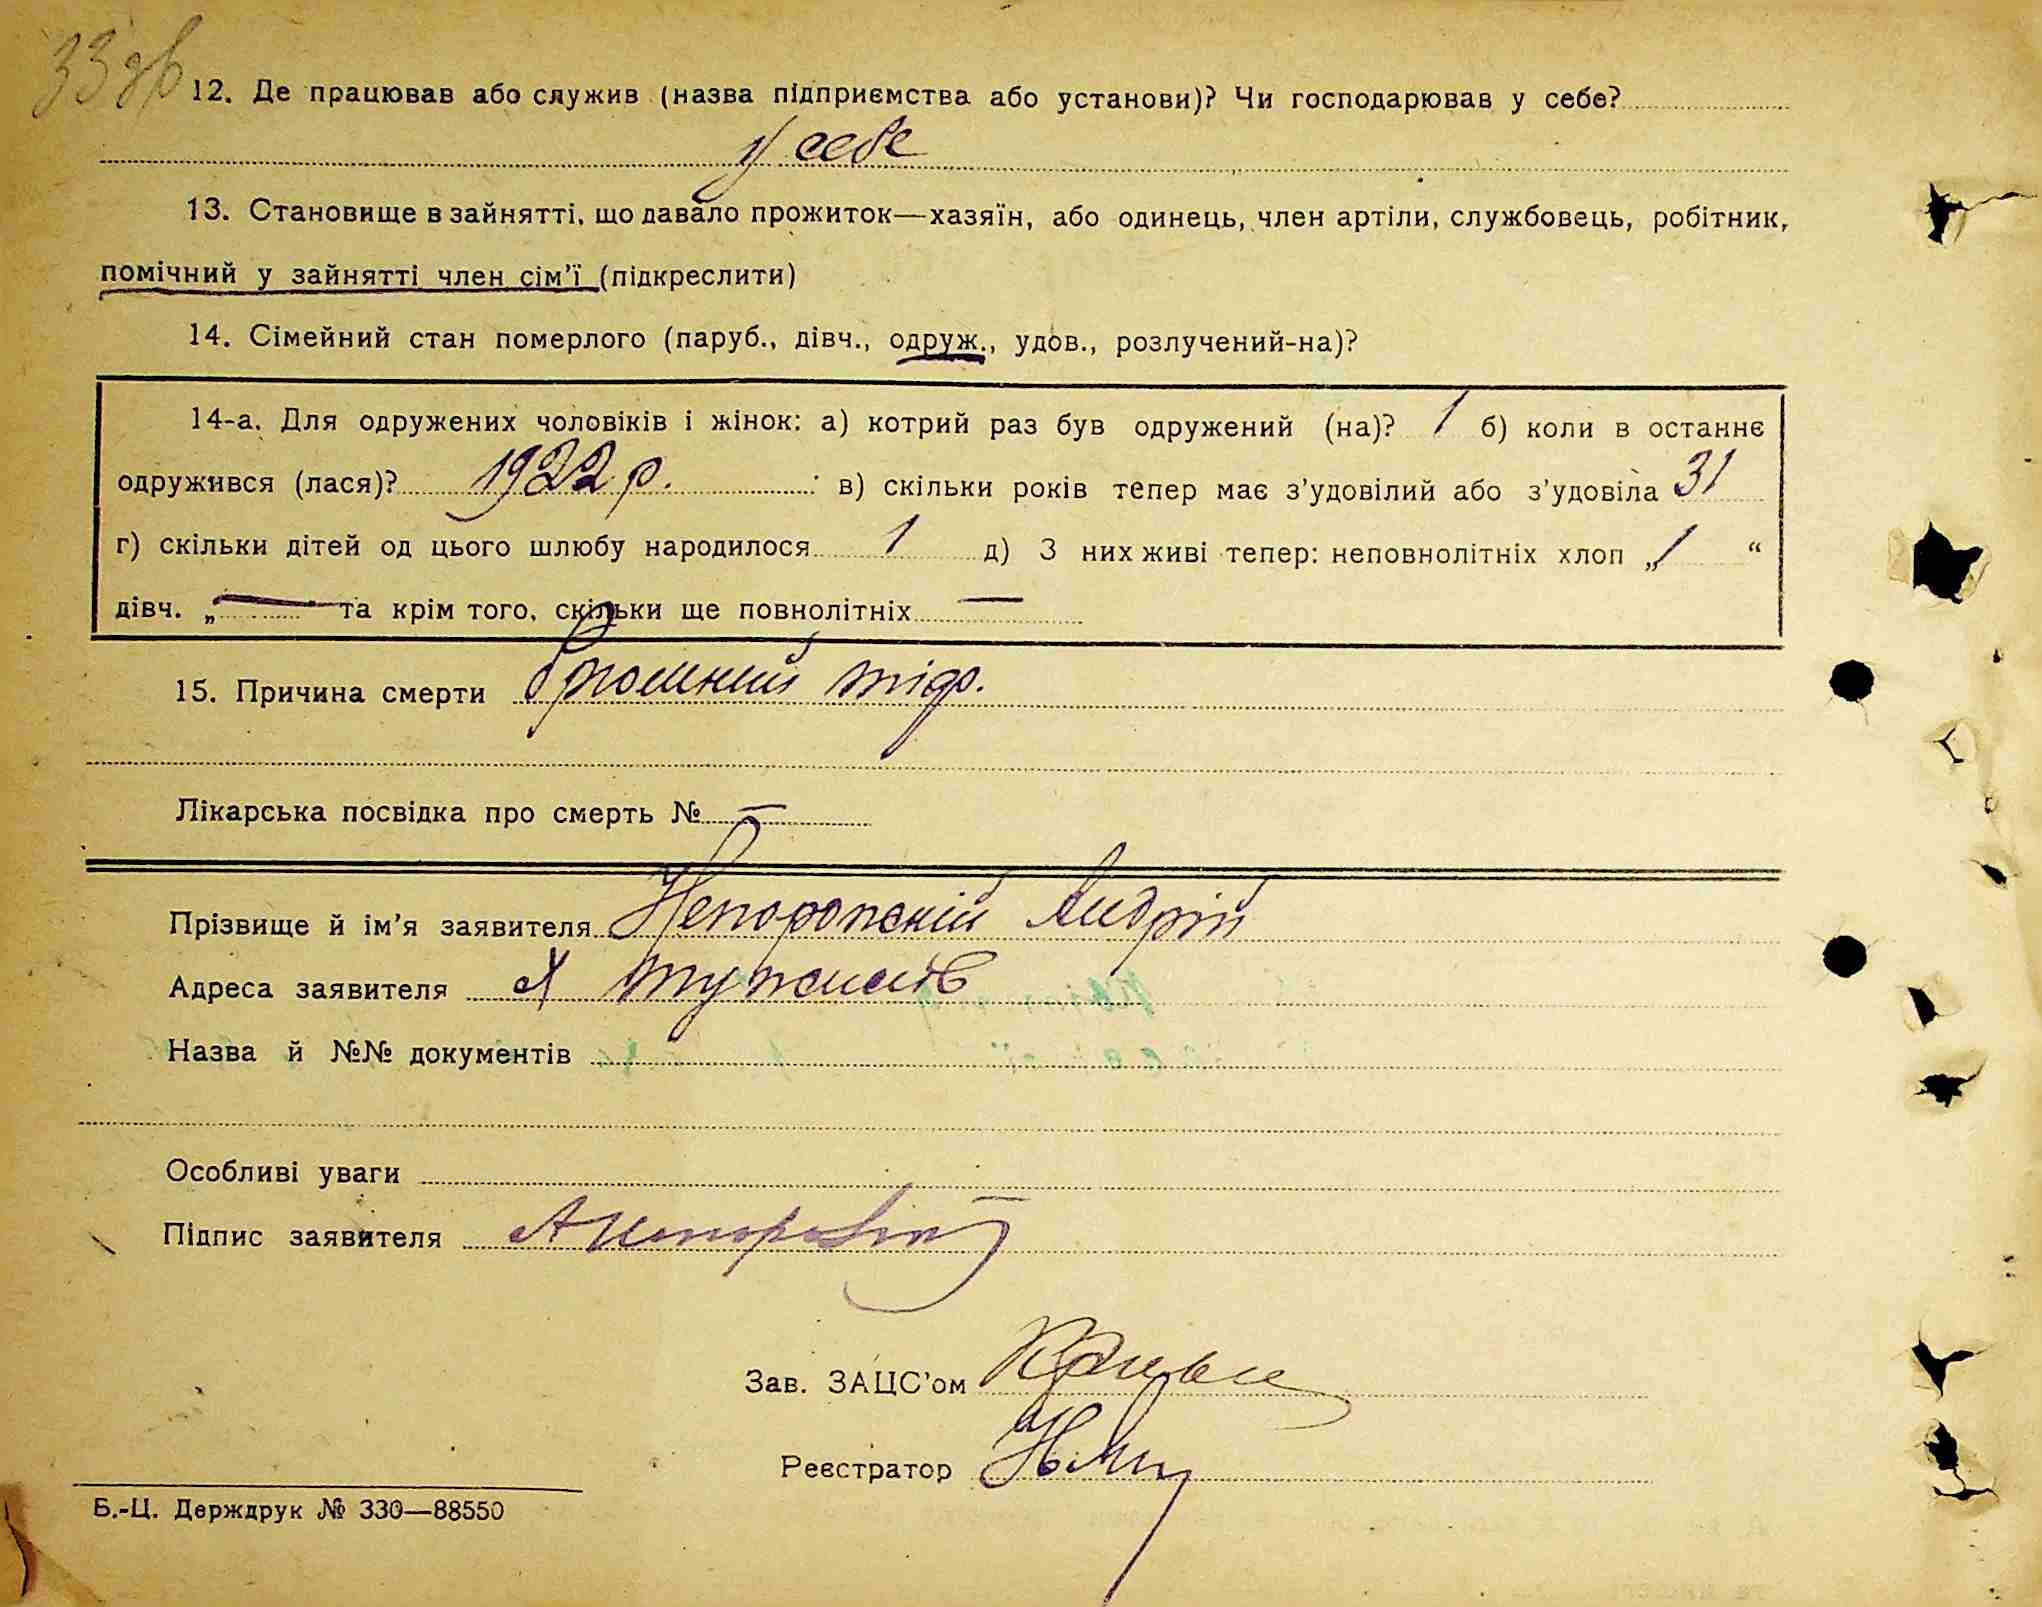 33 зв
12. Де працював або служив (назва підприємства або установи)? Чи господарював у себе?
у себе
13. Становище в зайнятті, що давало прожиток—хазяїн, або одинець, член артіли, службовець, робітник,
помічний у зайнятті член сім’ї (підкреслити)
14. Сімейний стан померлого (паруб., дівч., одруж., удов., розлучений-на)?
14-а. Для одружених чоловіків і жінок: а) котрий раз був одружений (на)? 1 б) коли в останнє
одружився (лася)? 1922 р. в) скільки років тепер має з’удовілий або з’удовіла 31
г) скільки дітей од цього шлюбу народилося 1 д) З них живі тепер: неповнолітніх хлоп „1“
дівч. „— та крім того, скільки ще повнолітніх —
15. Причина смерти
Лікарська посвідка про смерть № —
Прізвище й ім’я заявителя Непорожній Андрій
Адреса заявителя
Назва й №№ документів
Особливі уваги
Підпис заявителя
Зав. ЗАЦС’ом
Реєстратор
Б.-Ц. Держдрук № 330—88550